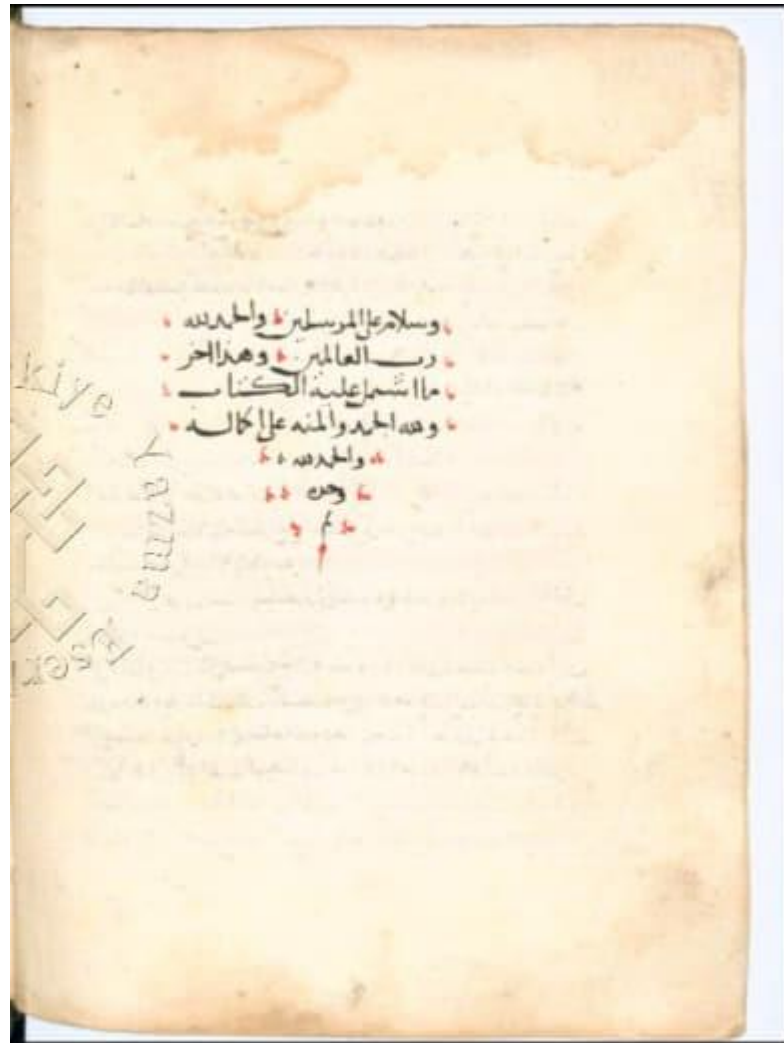 وسلام على المرسلين والحمد لله
رب العالمين وهذا اخر
ما اشتمل عليه الكتاب
ولله الحمد والمنه على اكماله
والحمد لله
وحده
م
kiye Yazma Eserl